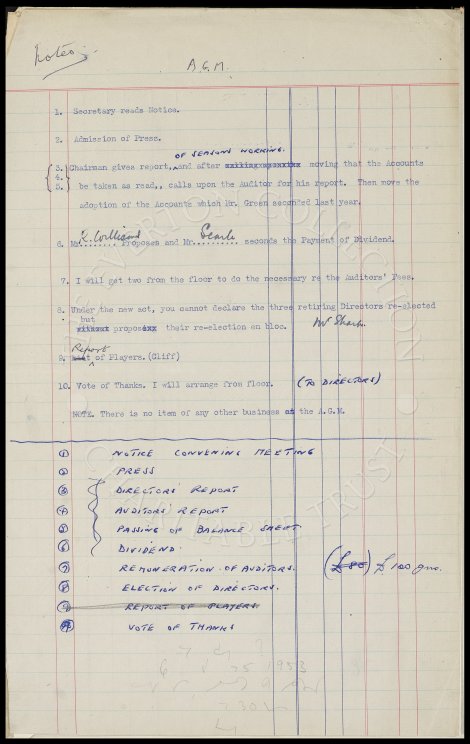 Notes
A.G.M.
1. Secretary reads Notice.
2. Admission of Press.
OF SEASONS WORKING.
3. Chairman gives report, and after moving that the Accounts
4.
5. be taken as read,, calls upon the Auditor for his report. Then move
the adoption of the Accounts which Mr. Green seconded last year.
6. Mr. R. Williams proposes and Mr. Searle seconds the Payment of Dividend.
7. I will get two from the floor to do the necessary re the Auditors' Fees.
8. Under the new act, you cannot declare the three retiring Directors re-elected
but
propose their re-election en bloc. Mr Sharp.
Report
9. of Players. (Cliff)
10. Vote of Thanks. I will arrange from floor. (TO DIRECTORS)
NOTE. There is no item of any other business at the A.G.M.
1 NOTICE CONVENING MEETING
2 PRESS
3 DIRECTORS' REPORT
4 AUDITORS' REPORT
5 PASSING OF BALANCE SHEET
6 DIVIDEND
7 REMUNERATION OF AUDITORS. (£80) £100 gns.
8 ELECTION OF DIRECTORS.
9 REPORT OF PLAYERS.
VOTE OF THANKS
EVERTON COLLECTION
CHARITABLE TRUST